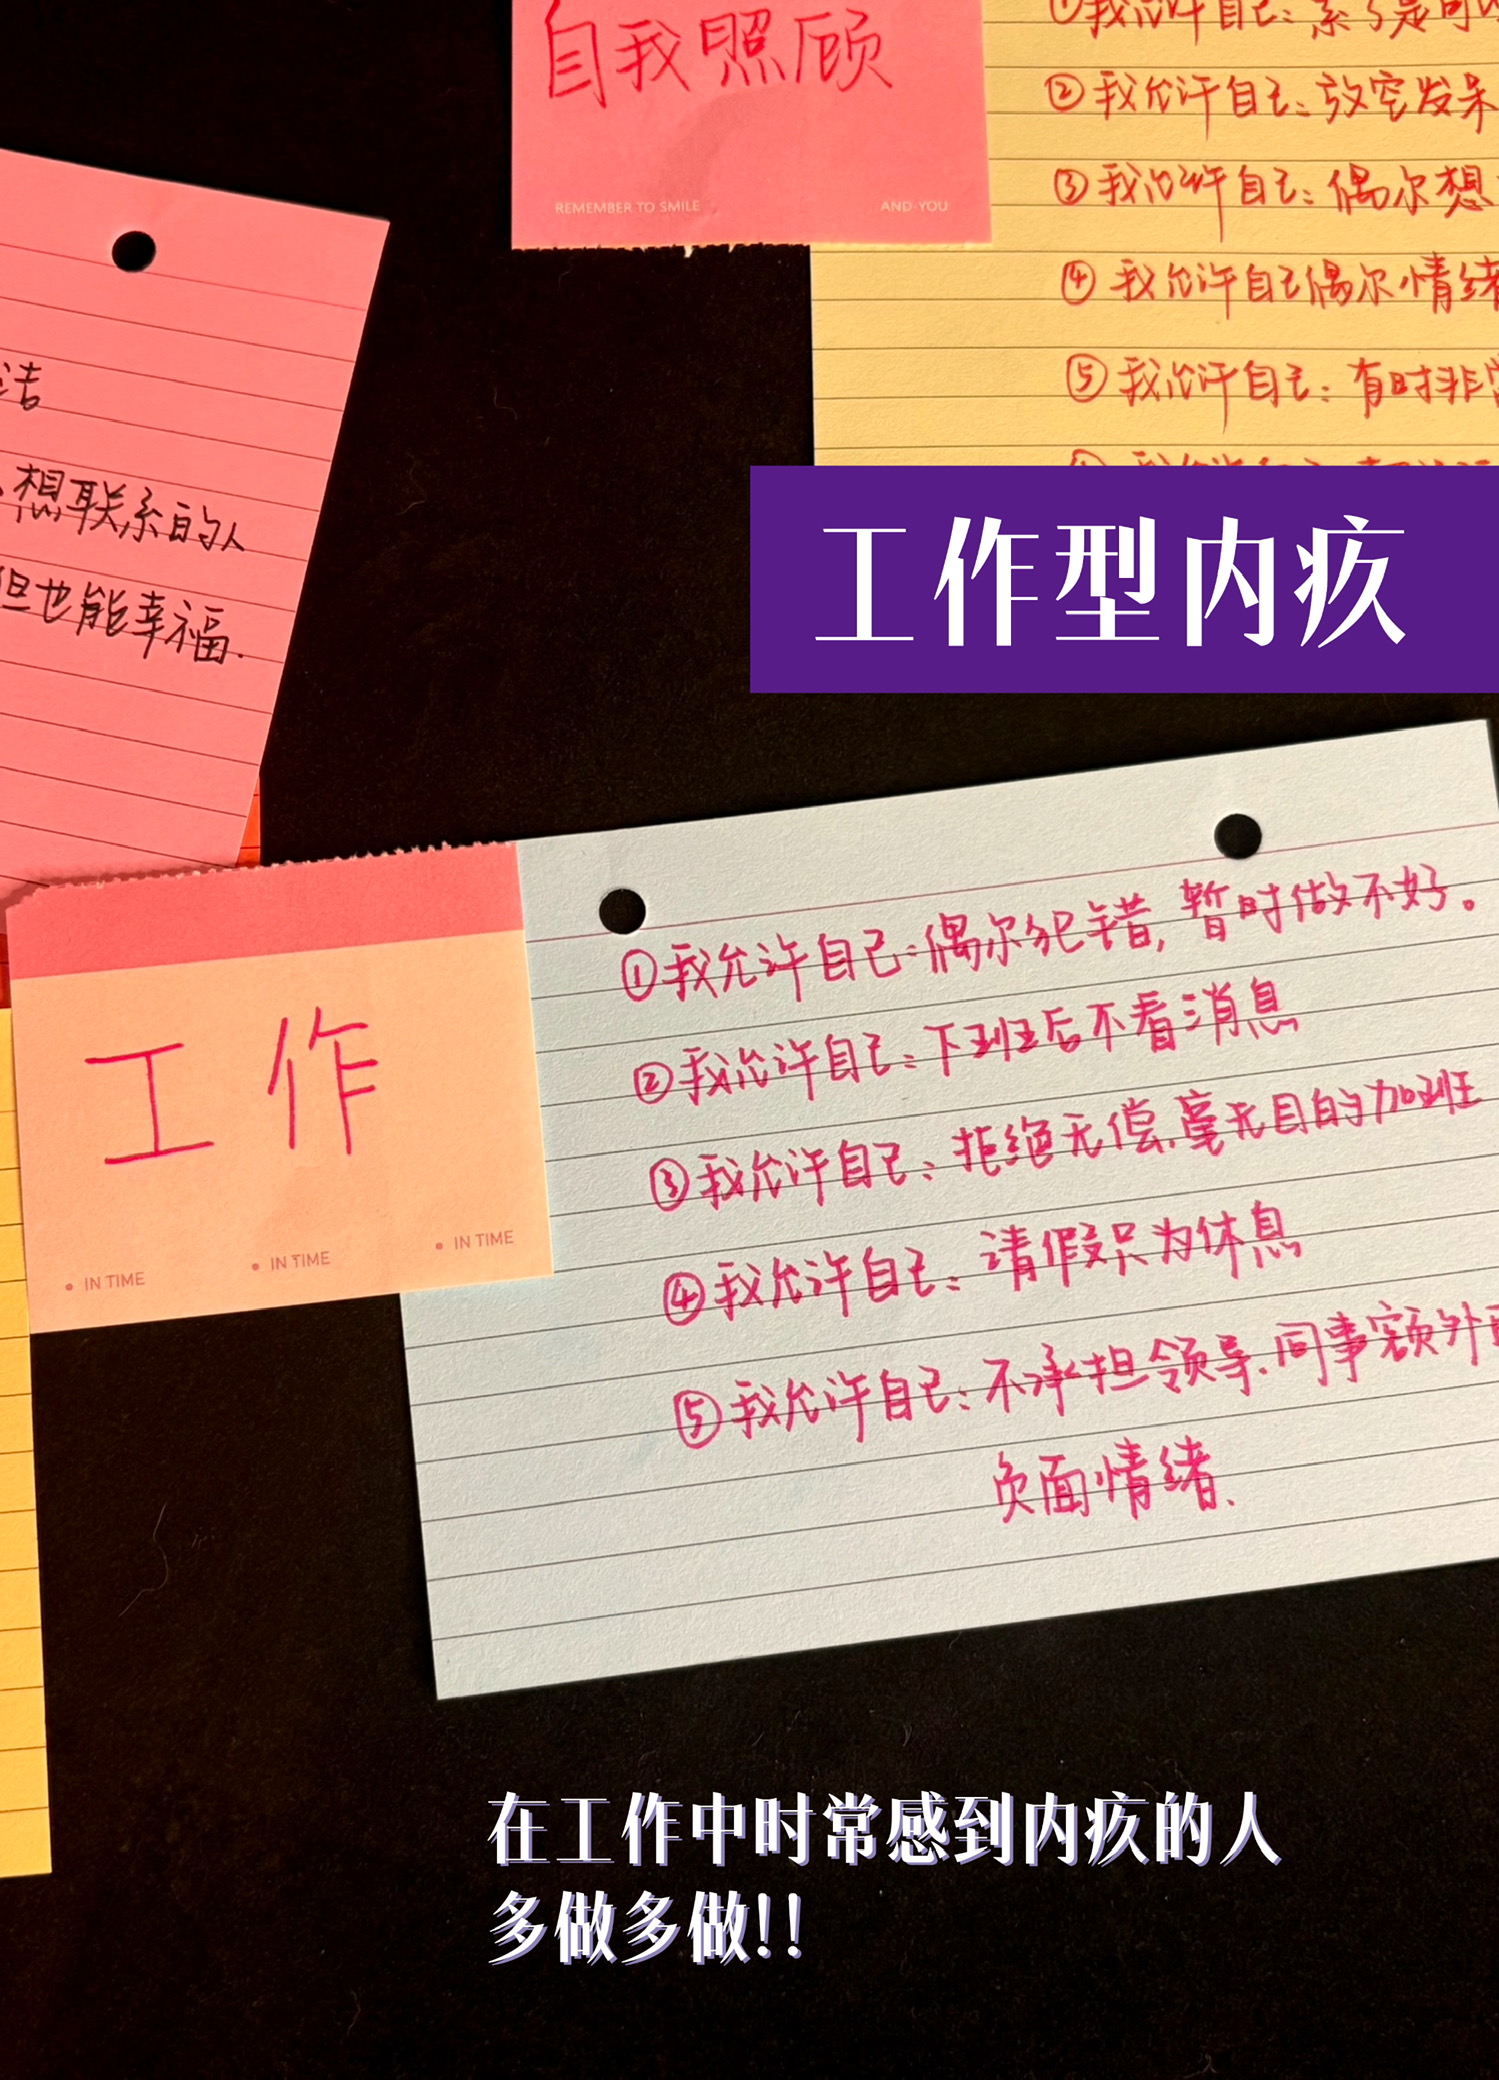 自我照顾
REMEMBER TO SMILE
AND YOU
①我允许自己：累了是可
②我允许自己：放空发呆
③我允许自己：偶尔想
④我允许自己偶尔情绪
⑤我允许自己：有时非常
洁
想联系的人
但也能幸福.
工作型内疚
工作
IN TIME
IN TIME
IN TIME
①我允许自己：偶尔犯错，暂时做不好。
②我允许自己：下班后不看消息
③我允许自己：拒绝无偿、毫无目的加班
④我允许自己：请假只为休息
⑤我允许自己：不承担领导、同事额外
负面情绪.
在工作中时常感到内疚的人
多做多做!!